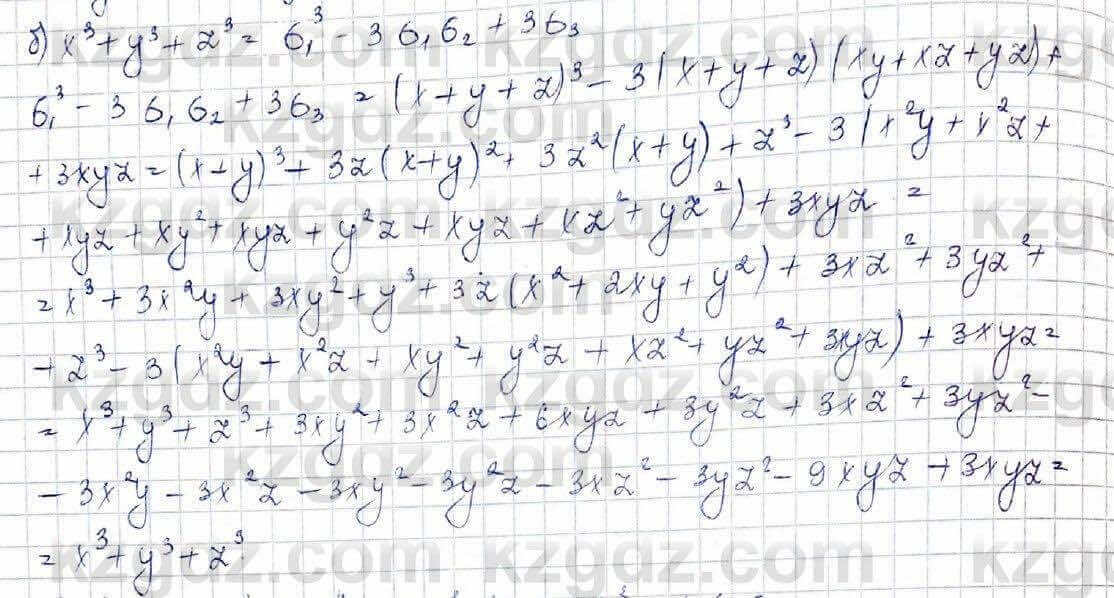 б) x³ + y³ + z³ = б₁³ - 3б₁б₂ + 3б₃
б₁³ - 3б₁б₂ + 3б₃ = (x + y + z)³ - 3(x + y + z)(xy + xz + yz) +
+ 3xyz = (x + y)³ + 3z(x + y)² + 3z²(x + y) + z³ - 3(x²y + x²z +
+ xyz + xy² + xyz + y²z + xyz + xz² + yz²) + 3xyz =
= x³ + 3x²y + 3xy² + y³ + 3z(x² + 2xy + y²) + 3xz² + 3yz² +
+ z³ - 3(x²y + x²z + xy² + y²z + xz² + yz² + 3xyz) + 3xyz =
= x³ + y³ + z³ + 3xy² + 3x²z + 6xyz + 3y²z + 3xz² + 3yz² -
- 3x²y - 3x²z - 3xy² - 3y²z - 3xz² - 3yz² - 9xyz + 3xyz =
= x³ + y³ + z³
kzgdz.com